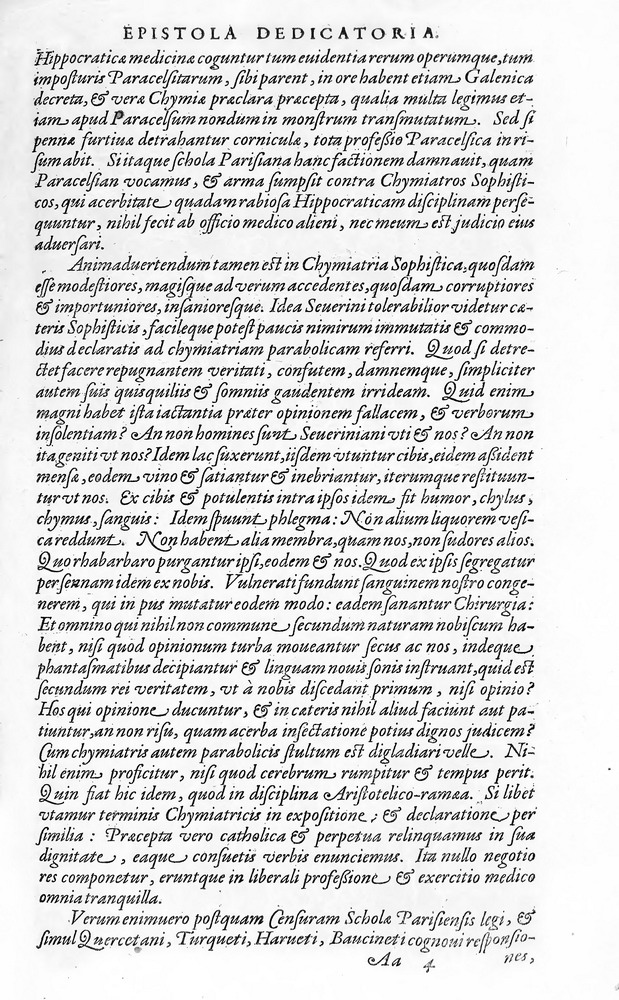 EPISTOLA DEDICATORIA.
Hippocraticæ medicinæ coguntur tum euidentia rerum operumque, tum
imposturis Paracelsitarum, sibi parent, in ore habent etiam Galenica
decreta, & veræ Chymiæ præclara præcepta, qualia multa legimus et-
iam apud Paracelsum nondum in monstrum transmutatum. Sed si
pennæ furtiuæ detrahantur corniculæ, tota professio Paracelsica in ri-
sum abit. Si itaque schola Parisiana hanc factionem damnauit, quam
Paracelsian vocamus, & arma sumpsit contra Chymiatros Sophisti-
cos, qui acerbitate quadam rabiosa Hippocraticam disciplinam perse-
quuntur, nihil fecit ab officio medico alieni, nec meum est judicio eius
aduersari.
Animaduertendum tamen est in Chymiatria Sophistica, quosdam
esse modestiores, magisque ad verum accedentes, quosdam corruptiores
& importuniores, insanioresque. Idea Seuerini tolerabilior videtur cæ-
teris Sophisticis, facileque potest paucis nimirum immutatis & commo-
dius declaratis ad chymiatriam parabolicam referri. Quod si detre-
ctet facere repugnantem veritati, confutem, damnemque, simpliciter
autem suis quisquiliis & somniis gaudentem irrideam. Quid enim
magni habet ista iactantia præter opinionem fallacem, & verborum
insolentiam? An non homines sunt Seueriniani vti & nos? An non
ita geniti vt nos? Idem lac suxerunt, iisdem vtuntur cibis, eidem assident
mensæ, eodem vino & satiantur & inebriantur, iterumque restituun-
tur vt nos. Ex cibis & potulentis intra ipsos idem fit humor, chylus,
chymus, sanguis: Idem spuunt phlegma: Non alium liquorem vesi-
ca reddunt. Non habent alia membra, quam nos, non sudores alios.
Quo rhabarbaro purgantur ipsi, eodem & nos. Quod ex ipsis segregatur
per sennam idem ex nobis. Vulnerati fundunt sanguinem nostro conge-
nerem, qui in pus mutatur eodem modo: eadem sanantur Chirurgia:
Et omnino qui nihil non commune secundum naturam nobiscum ha-
bent, nisi quod opinionum turba moueantur secus ac nos, indeque
phantasmatibus decipiantur & linguam nouis sonis instruant, quid est
secundum rei veritatem, vt à nobis discedant primum, nisi opinio?
Hos qui opinione ducuntur, & in cæteris nihil aliud faciunt aut pa-
tiuntur, an non risu, quam acerba insectatione potius dignos judicem?
Cum chymiatris autem parabolicis stultum est digladiari velle. Ni-
hil enim proficitur, nisi quod cerebrum rumpitur & tempus perit.
Quin fiat hic idem, quod in disciplina Aristotelico-ramæa. Si libet
vtamur terminis Chymiatricis in expositione, & declaratione per
similia: Præcepta vero catholica & perpetua relinquamus in sua
dignitate, eaque consuetis verbis enunciemus. Ita nullo negotio
res componetur, eruntque in liberali professione & exercitio medico
omnia tranquilla.
Verum enimuero postquam Censuram Scholæ Parisiensis legi, &
simul Quercetani, Turqueti, Harueti, Baucineti cognoui responsio-
Aa 4 nes,